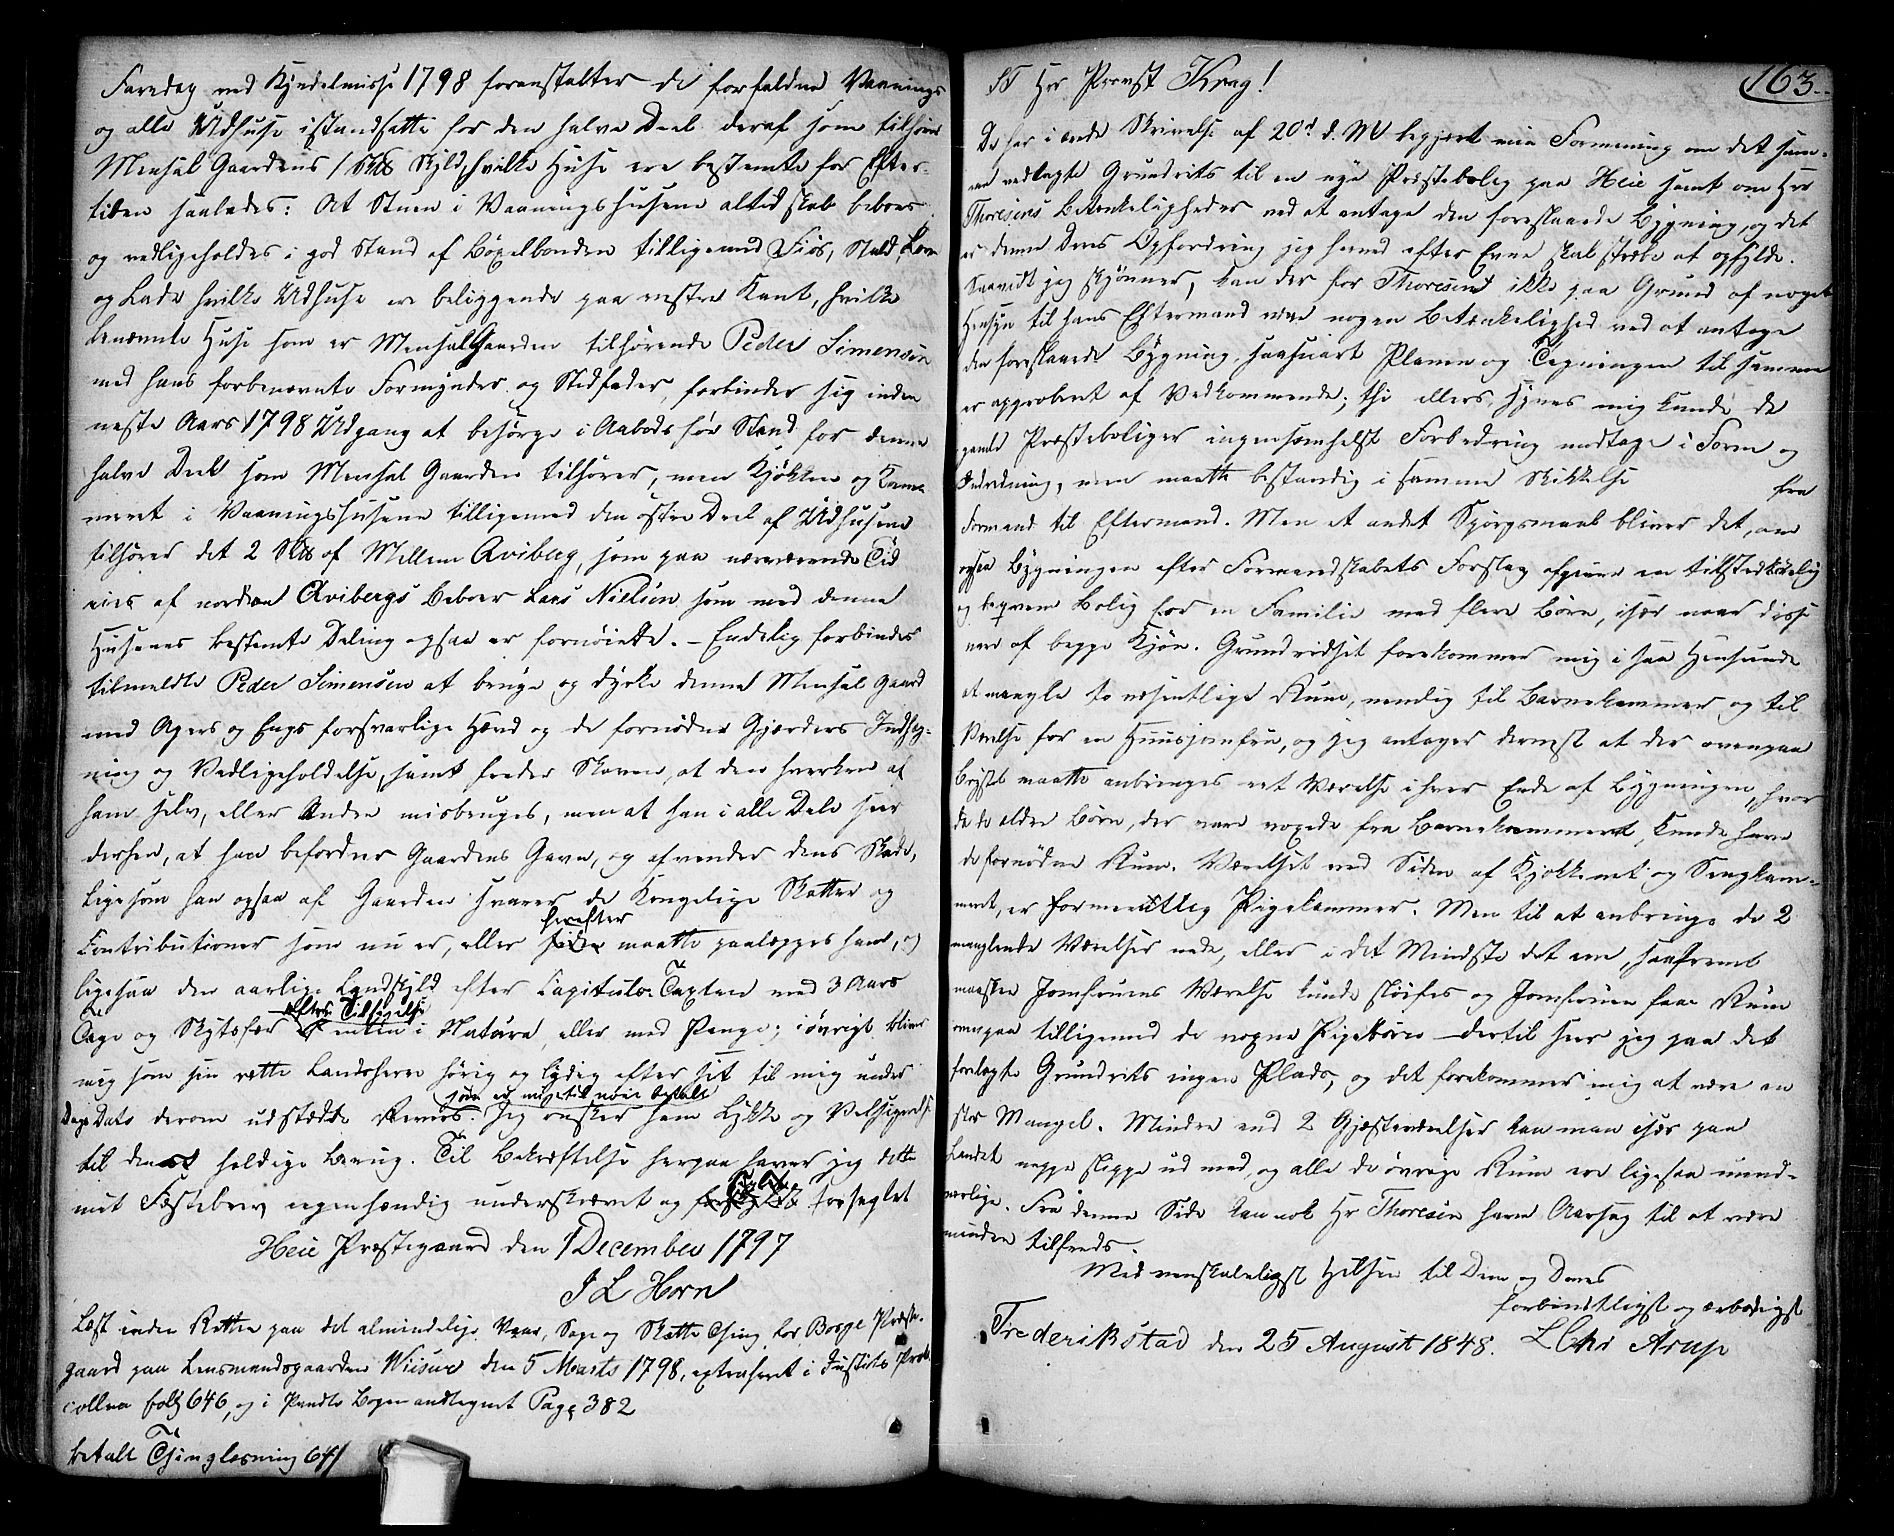 Faredag ved Kyndelmisse 1798 foranstalter de forfaldne Vaanings
og alle Udhuse istandsætte for den halve Deel deraf som tilhører
Mensal Gaardens 1 Skds Skyld, hvilke Huse ere bestemte for Efter-
tiden saaledes: At Stuen i Vaaningshusene altid skal beboes
og vedligeholdes i god Stand af Böxelbonden tilligemed Fiös, Stald,
og Lade hvilke Udhuse ere beliggende paa vestre Kant, hvilke
benævnte Huse som er Mensal Gaarden tilhørende Peder Simensen
med hans forbenævnte Formynder og Stedfader, forbinder sig inden
næste Aars 1798 Udgang at besørge i Aabods før Stand for denne
halve Deel som Mensal Gaarden tilhører, men Kjøkken og Kam-
meret i Vaaningshusene tilligemed den østre Deel af Udhusene
tilhører det 2 Skds af Mellem Qviberg, som paa nærværende Tid
eies af nordre Qvibergs Beboer Lars Nielsen som med denne
Husenes bestemte Deling ogsaa er fornøiet. - Endelig forbindes
tilmeldte Peder Simensen at bruge og dyrke denne Mensal Gaard
med Agers og Engs forsvarlige Hævd og de fornødne Gjærders Indheg-
ning og Vedligeholdelse, samt freder Skoven, at den hverken af
ham selv, eller Andre misbruges, men at han i alle Dele seer
derhen, at han befordrer Gaardens Gavn, og afvender dens Skade,
ligesom han ogsaa af Gaarden svarer de Kongelige Skatter og
Contributioner som nu er, eller herefter maatte paalægges ham, og
ligesaa den aarlige Landskyld efter Capituls Taxten med 3 Aars
Tage og Skytsfær efter Tilsigelse enten i Natura, eller med Penge; iøvrigt bliver
mig som sin rette Landsherre hørig og lydig efter sit til mig under
Dags Dato derom udstædte Revers. som er mig til nøie betalt Jeg ønsker ham Lykke og Velsignelse
til dens heldige Brug. Til Bekræftelse herpaa haver jeg dette
mit Fæstebrev egenhændig underskrevet og forseglet
Heie Præstegaard den 1 December 1797
J L Horn
Læst inden Retten paa det almindelige Vaar, Sage og Skatte Thing for Borge Præste-
gaard paa Lensmandsgaarden Wiisur den 5 Marts 1798, extraheret i Justits Proto-
collen fol 646, og i Pandte Bogen antegnet Pag 382
betalt Thinglæsning 64/
163
ST Hr Provst Krag!
De har i ærede Skrivelse af 20d d. M begjært min Formening om det sam-
me vedlagte Grundrits til en nye Præstebolig paa Heie samt om Hr
Thoresens Betænkeligheder ved at antage den foreslaaede Bygning, og det
er denne Deres Opfordring jeg herved efter Evne skal stræbe at opfylde.
Saavidt jeg skjønner, kan der for Thoresen ikke paa Grund af noget
Hensyn til hans Eftermand være nogen Betænkelighed ved at antage
den foreslaaede Bygning, saasnart Planen og Tegningen til samme
er approberet af Vedkommende; thi ellers synes mig kunde de
gamle Præsteboliger ingensomhelst Forbedring modtage i Form og
Indretning, men maatte bestandig i samme Skikkelse fra
Formand til Eftermand. Men et andet Spørgsmaal bliver det, om
ogsaa Bygningen efter Formandskabets Forslag afgiver en tilstrækkelig
og beqvem Bolig for en Familie med flere Børn, især naar disse
ere af begge Kjøn. Grundridset forekommer mig i saa Henseende
at mangle to væsentlige Rum, nemlig til Barnekammer og til
Værelse for en Huusjomfru, og jeg antager dernæst at der ovenpaa
maatte anbringes eet Værelse i hver Ende af Bygningen, hvor
da de ældre Børn, der vare voxede fra Barnekammeret, kunde have
de fornødne Rum. Værelset ved Siden af Kjøkkenet og Sengekam-
meret, er formentlig Pigekammer. Men til at anbringe de 2
manglende Værelser nede, eller i det Mindste det ene, saafremt
maaskee Jomfruens Værelse kunde sløifes og Jomfruen faae Rum
ovenpaa tilligemed de voxne Pigebørn - dertil seer jeg paa det
forelagte Grundrits ingen Plads, og det forekommer mig at være en
stor Mangel. Mindre end 2 Gjæsteværelser kan man især paa
Landet neppe slippe ud med, og alle de øvrige Rum ere ligesaa uund-
værlige. Fra denne Side kan nok Hr Thoresen have Aarsag til at være
mindre tilfreds.
Med venskabeligst Hilsen til Dem og Deres
forbindtligst og ærbødigst
Frederikstad den 25 August 1848. L Chr Arup